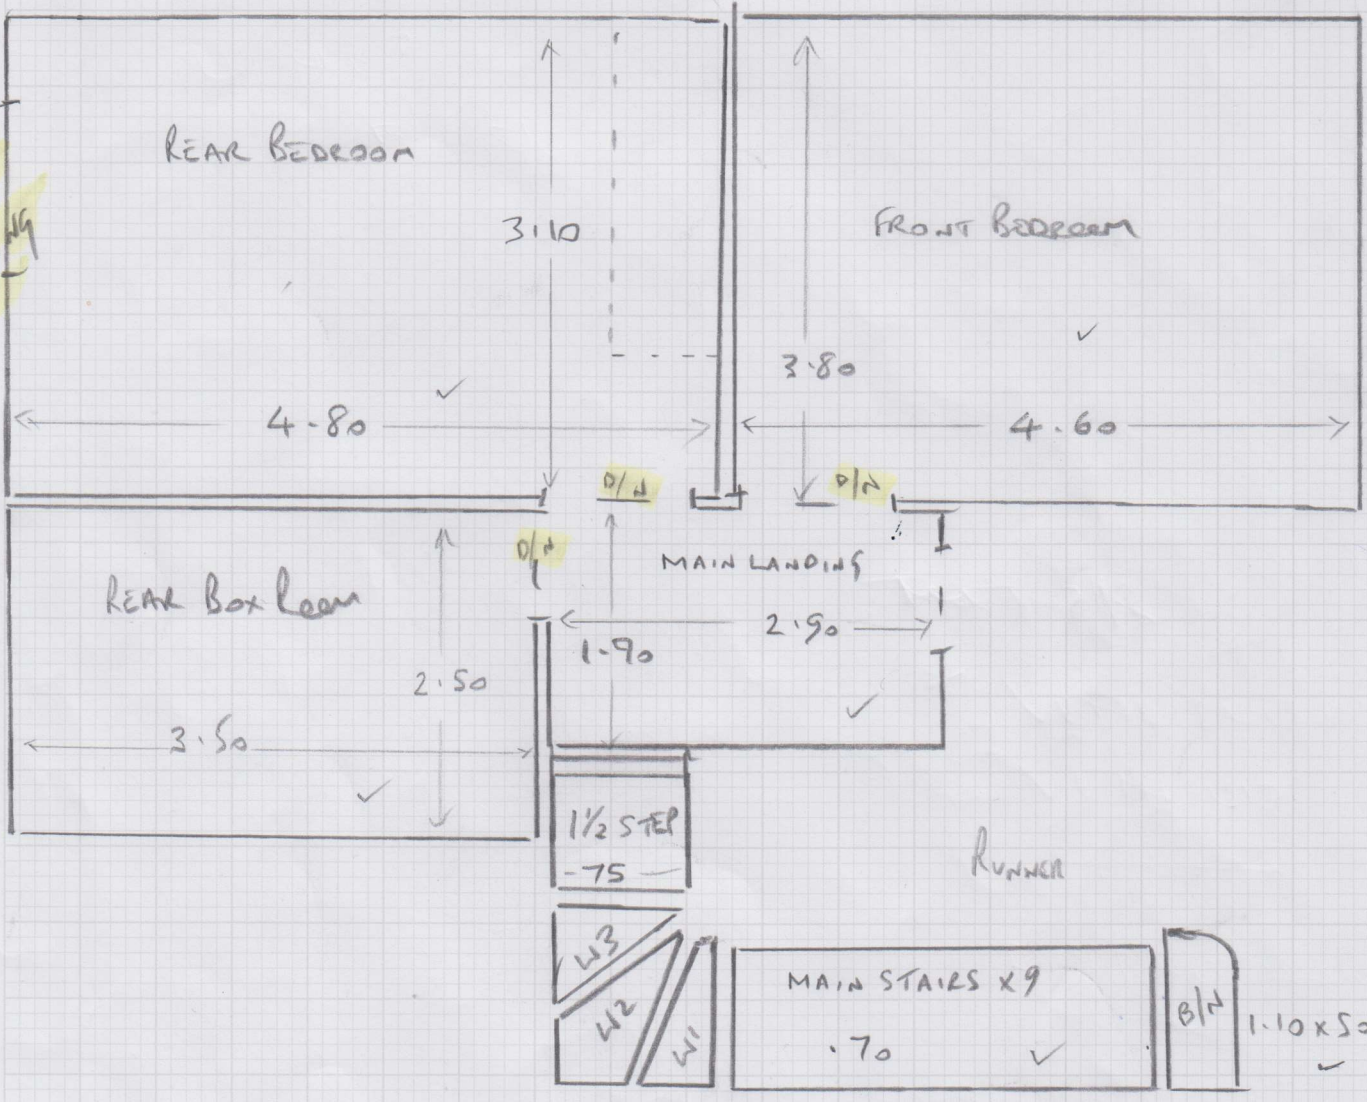 REAR BEDROOM
3.10
4.80
NG
FRONT BEDROOM
3.80
4.60
D/N
D/N
D/N
MAIN LANDING
2.90
1.90
REAR BOX ROOM
2.50
3.50
1½ STEP
-75
RUNNER
W3
W2
W1
MAIN STAIRS X9
.70
B/N
1.10 x 50